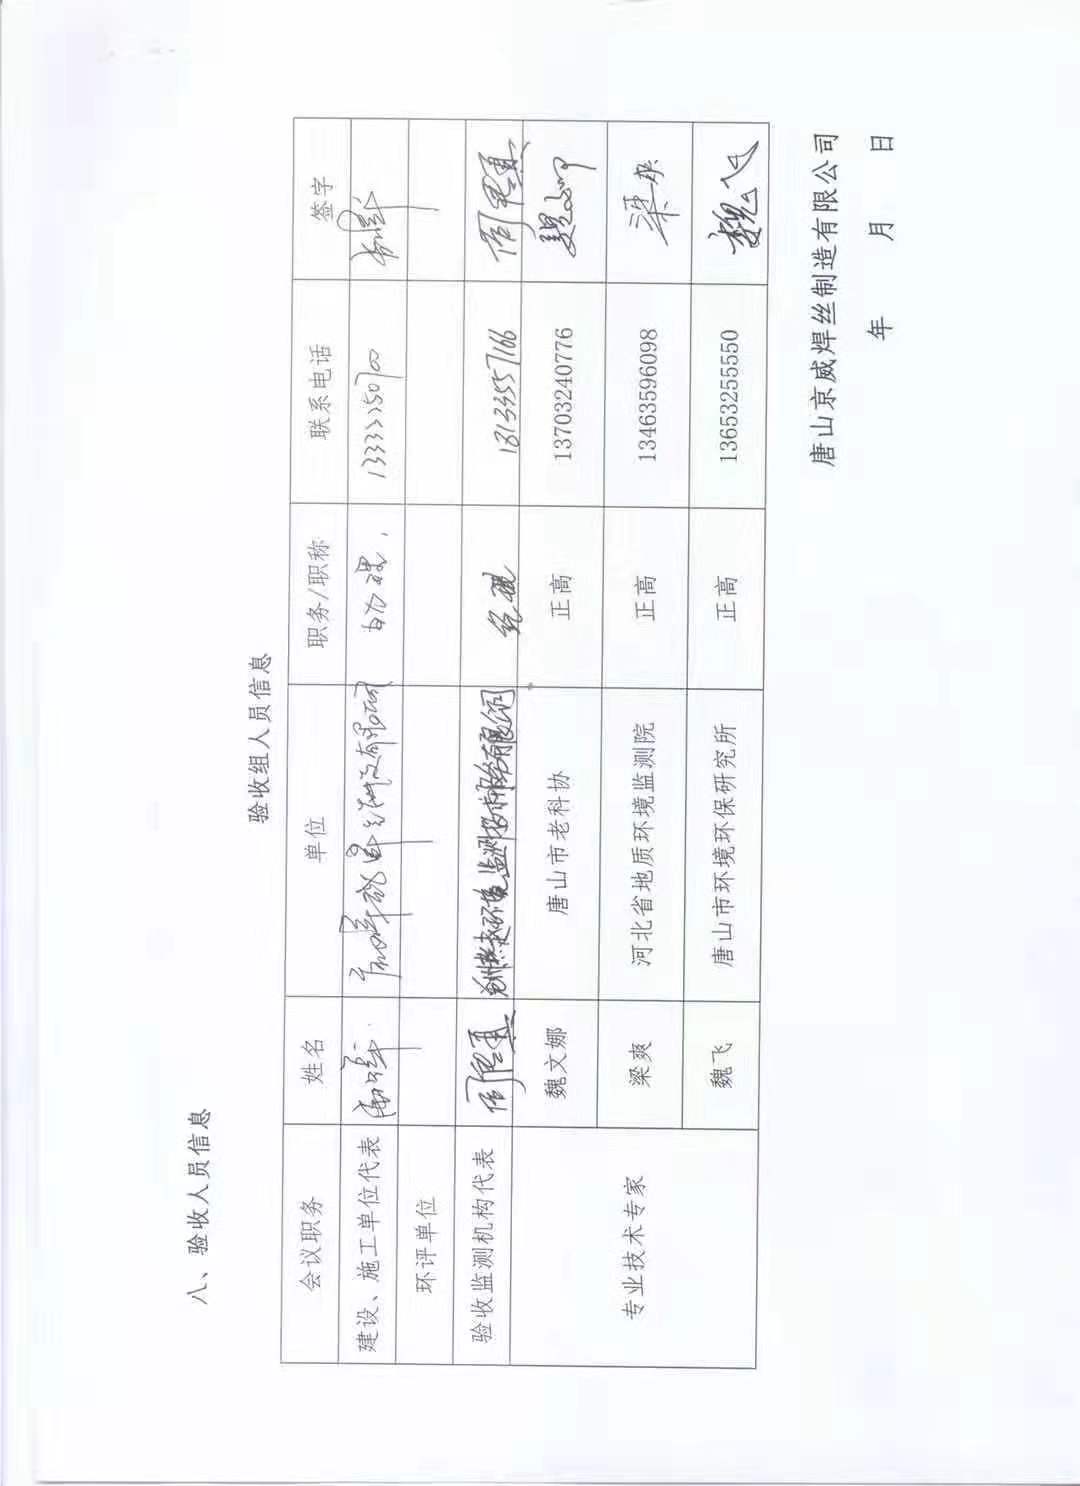 八、验收人员信息
验收组人员信息
会议职务 姓名 单位 职务/职称 联系电话 签字
建设、施工单位代表
环评单位
验收监测机构代表 经理 18133557166
专业技术专家 魏文娜 唐山市老科协 正高 13703240776 魏文娜
梁爽 河北省地质环境监测院 正高 13463596098 梁爽
魏飞 唐山市环境环保研究所 正高 13653255550 魏飞
唐山京威焊丝制造有限公司
年 月 日